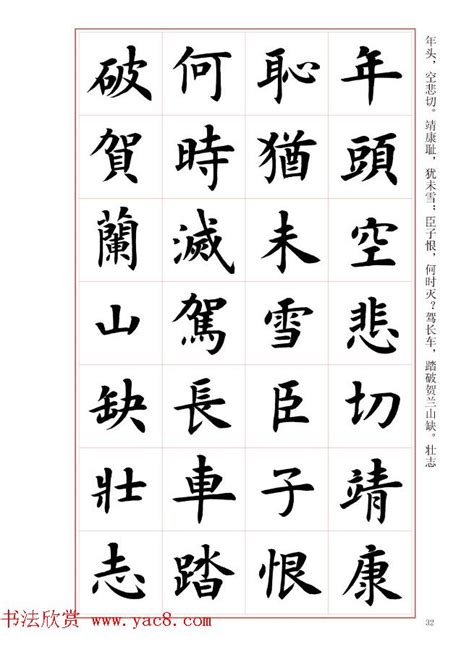 年頭空悲切靖康
恥猶未雪臣子恨
何時滅駕長車踏
破賀蘭山缺壯志
年头，空悲切。靖康耻，犹未雪；臣子恨，何时灭？驾长车，踏破贺兰山缺。壮志
32
书法欣赏 www.yac8.com